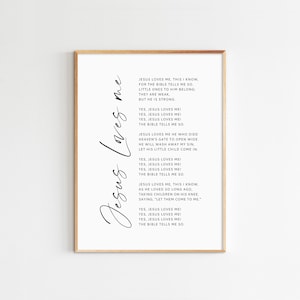 Jesus Loves me
JESUS LOVES ME, THIS I KNOW,
FOR THE BIBLE TELLS ME SO.
LITTLE ONES TO HIM BELONG,
THEY ARE WEAK,
BUT HE IS STRONG.
YES, JESUS LOVES ME!
YES, JESUS LOVES ME!
YES, JESUS LOVES ME!
THE BIBLE TELLS ME SO.
JESUS LOVES ME HE WHO DIED
HEAVEN'S GATE TO OPEN WIDE
HE WILL WASH AWAY MY SIN,
LET HIS LITTLE CHILD COME IN.
YES, JESUS LOVES ME!
YES, JESUS LOVES ME!
YES, JESUS LOVES ME!
THE BIBLE TELLS ME SO.
JESUS LOVES ME, THIS I KNOW,
AS HE LOVED SO LONG AGO,
TAKING CHILDREN ON HIS KNEE,
SAYING, "LET THEM COME TO ME."
YES, JESUS LOVES ME!
YES, JESUS LOVES ME!
YES, JESUS LOVES ME!
THE BIBLE TELLS ME SO.